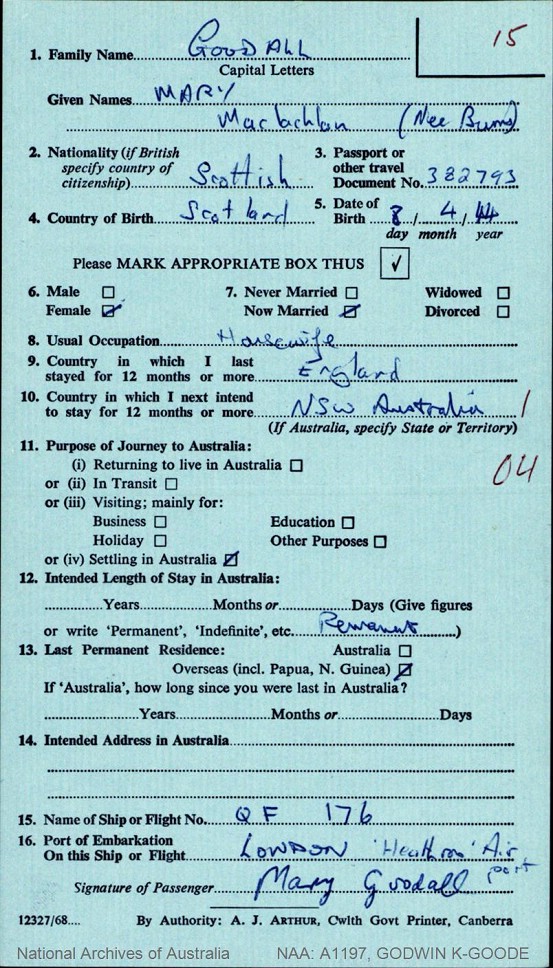 15
1. Family Name GOODALL
Capital Letters
Given Names MARY
Maclachlan (Nee Burns)
2. Nationality (if British specify country of citizenship) Scottish
3. Passport or other travel Document No. 382793
4. Country of Birth Scotland
5. Date of Birth 8 / 4 / 44
day month year
Please MARK APPROPRIATE BOX THUS ✓
6. Male ☐ 7. Never Married ☐ Widowed ☐
Female ☑ Now Married ☑ Divorced ☐
8. Usual Occupation Housewife
9. Country in which I last
stayed for 12 months or more England
10. Country in which I next intend
to stay for 12 months or more NSW Australia 1
(If Australia, specify State or Territory)
11. Purpose of Journey to Australia:
(i) Returning to live in Australia ☐ 04
or (ii) In Transit ☐
or (iii) Visiting; mainly for:
Business ☐ Education ☐
Holiday ☐ Other Purposes ☐
or (iv) Settling in Australia ☑
12. Intended Length of Stay in Australia:
Years Months or Days (Give figures
or write 'Permanent', 'Indefinite', etc. )
13. Last Permanent Residence: Australia ☐
Overseas (incl. Papua, N. Guinea) ☑
If 'Australia', how long since you were last in Australia?
Years Months or Days
14. Intended Address in Australia
15. Name of Ship or Flight No. QF 176
16. Port of Embarkation
On this Ship or Flight LONDON 'Heathrow' Air
port
Signature of Passenger Mary Goodall
12327/68.... By Authority: A. J. ARTHUR, Cwlth Govt Printer, Canberra
National Archives of Australia NAA: A1197, GODWIN K-GOODE